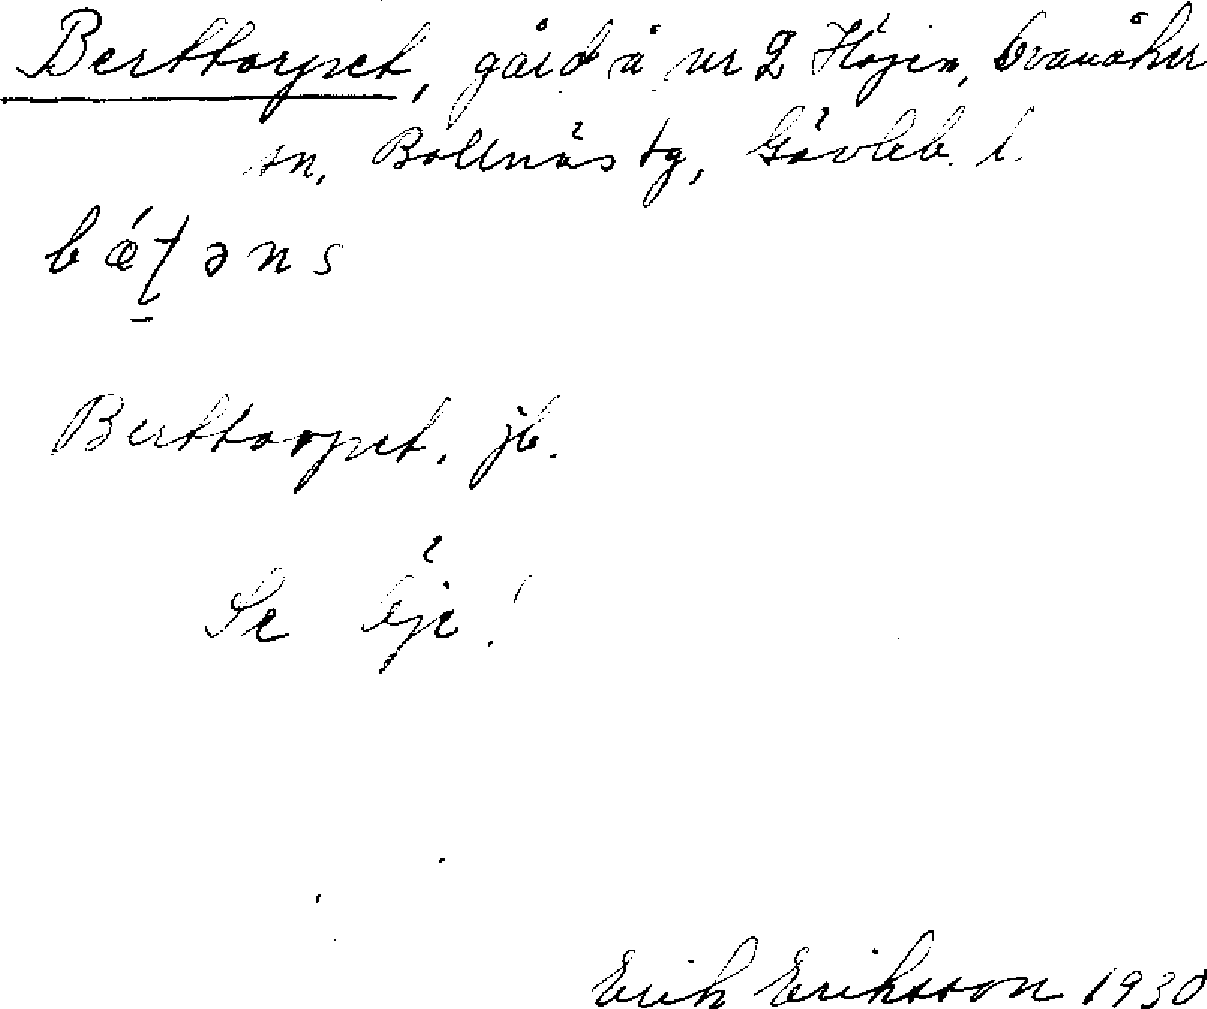 Berttorpet, gård å nr 2 Höjen, Ovanåker
sn, Bollnäs tg, Gävleb. l.
Berttorpet. jb.
Se Öje!
Erik Eriksson 1930